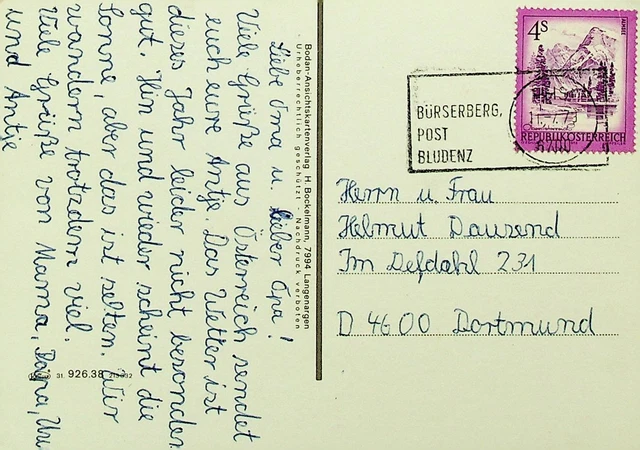 Liebe Oma u. lieber Opa!
Viele Grüße aus Österreich sendet
euch eure Antje. Das Wetter ist
dieses Jahr leider nicht besonders
gut. Hin und wieder scheint die
Sonne, aber das ist selten. Wir
wandern trotzdem viel.
Viele Grüße von Mama, Papa,
und Antje
Bodan-Ansichtskartenverlag H. Bockelmann, 7994 Langenargen
Urheberrechtlich geschützt - Nachdruck verboten
31. 926.38
4S
REPUBLIK ÖSTERREICH
BÜRSERBERG,
POST
BLUDENZ
6700
Herrn u. Frau
Helmut Dausend
Im Defdahl 231
D 4600 Dortmund